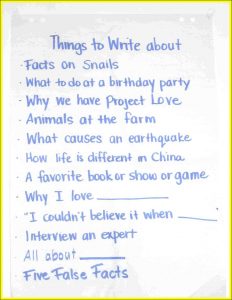 Things to Write about
· Facts on Snails
· What to do at a birthday party
· Why we have Project Love
· Animals at the farm
· What causes an earthquake
· How life is different in China
· A favorite book or show or game
· Why I love __________
· "I couldn't believe it when ______
· Interview an expert
· All about ________
· Five False Facts